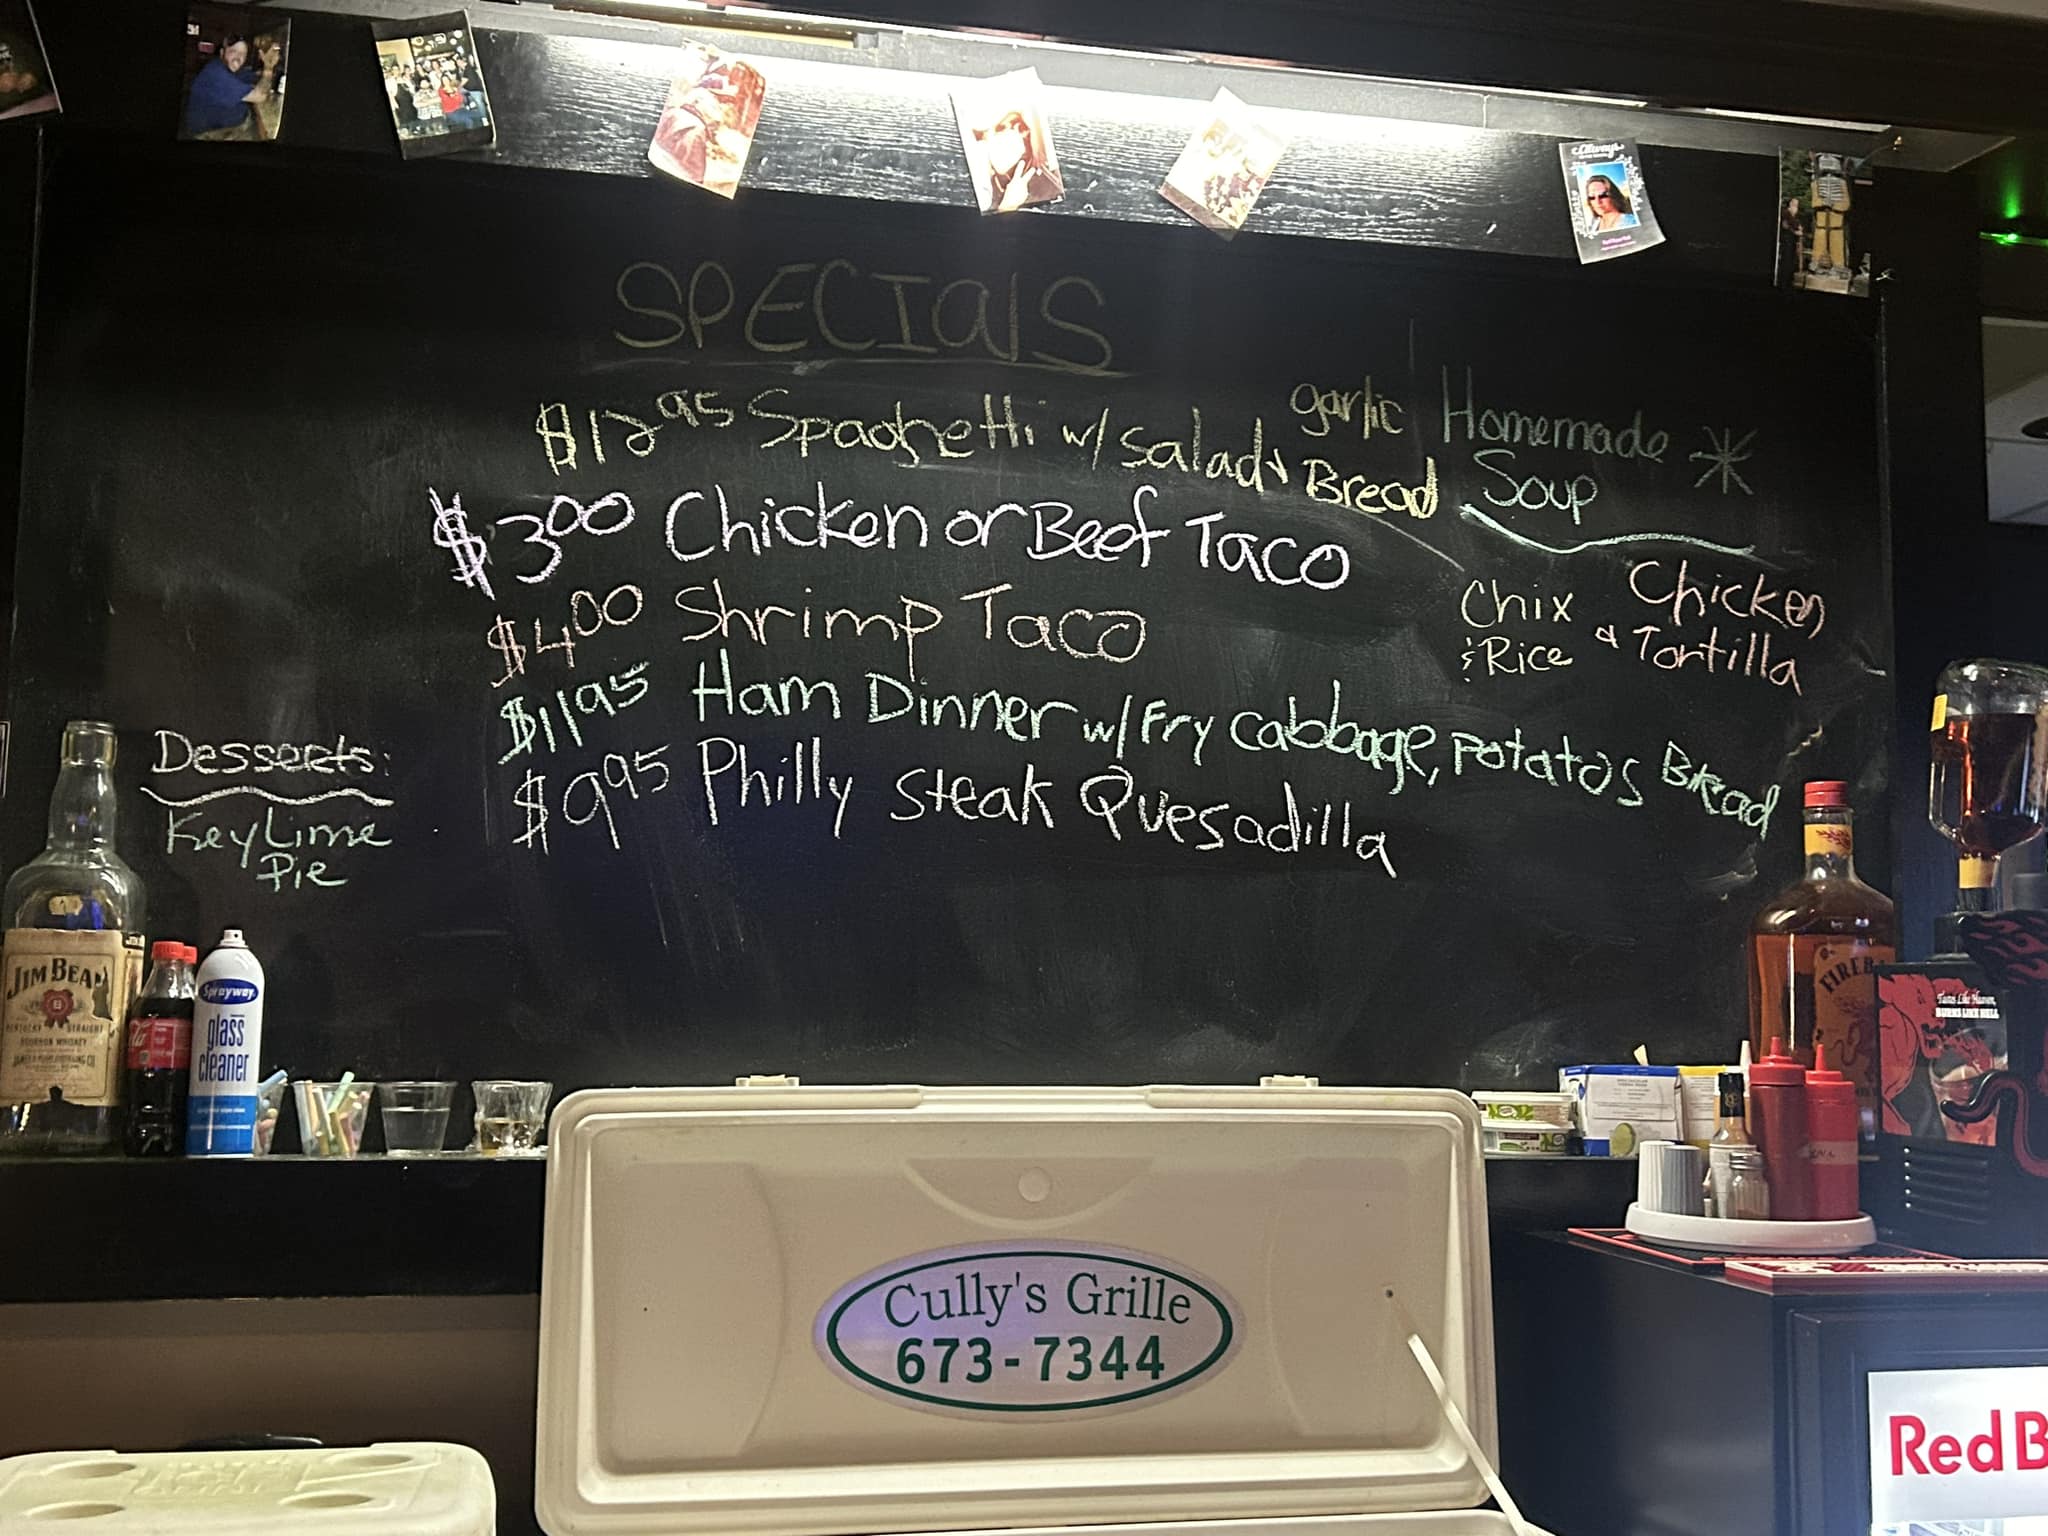 Always
SPECIALS
$12.95 Spaghetti w/ Salad & garlic Bread
$3.00 Chicken or Beef Taco
$4.00 Shrimp Taco
$11.95 Ham Dinner w/ Fry Cabbage, Potatos Bread
$9.95 Philly Steak Quesadilla
Homemade
Soup
Chix
& Rice
& Chicken
Tortilla
Desserts:
Key Lime
Pie
JIM BEAM
KENTUCKY STRAIGHT
BOURBON WHISKEY
Sprayway
glass
cleaner
FIREB
Tastes Like Heaven,
BURNS LIKE HELL
Cully's Grille
673-7344
Red B